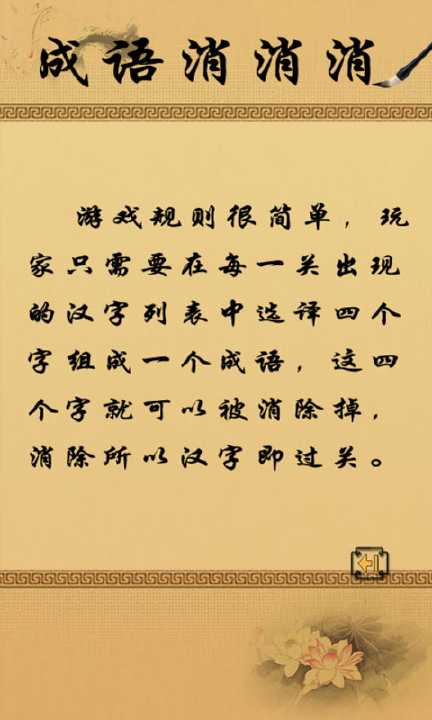 成语消消消
游戏规则很简单，玩
家只需要在每一关出现
的汉字列表中选译四个
字组成一个成语，这四
个字就可以被消除掉，
消除所以汉字即过关。